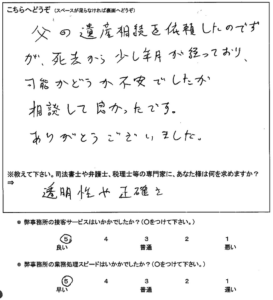 こちらへどうぞ (スペースが足らなければ裏面へどうぞ)
父の遺産相談を依頼したのです
が、死去から少し年月が経っており、
可能かどうか不安でしたが
相談して良かったです。
ありがとうございました。
※教えて下さい。司法書士や弁護士、税理士等の専門家に、あなた様は何を求めますか?
⇒
透明性や正確さ
* 弊事務所の接客サービスはいかがでしたか?(○をつけて下さい。)
5 4 3 2 1
良い 普通 悪い
* 弊事務所の業務処理スピードはいかがでしたか?(○をつけて下さい。)
5 4 3 2 1
早い 普通 遅い